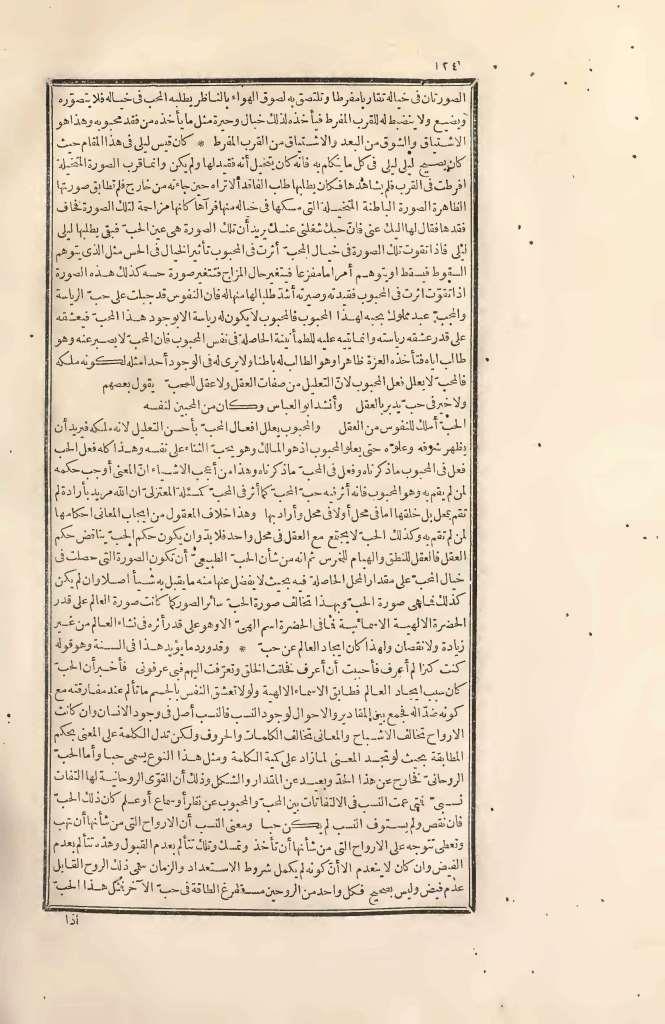 ١٢٤
الصورتان فى خياله تقاربا مفرطا وتلتصق به لصوق الهواء بالناظر يطلبه المحب فى خياله فلا يتصوره
ويضيع ولا ينضبط له للقرب المفرط فيأخذه لذلك خبال وحيرة مثل ما يأخذه من فقد محبوبه وهذا هو
الاشتياق والشوق من البعد والاشتياق من القرب المفرط * كان قيس ليلى فى هذا المقام حيث
كان يصيح ليلى ليلى فى كل ما يتكلم به فانه كان يتخيل أنه فقيد لها ولم يكن وانما قرب الصورة المتخيلة
افرطت فى القرب فلم يشاهدها فكان يطلبها طلب الفاقد ألا تراه حين جاءته من خارج فلم تطابق صورتها
الظاهرة الصورة الباطنة المتخيلة التى مسكها فى خياله منها فرآها كانها مزاحمة لتلك الصورة فخاف
فقدها فقال لها اليك عنى فان حبك شغلنى عنك يريد أن تلك الصورة هى عين الحب فبقى يطلبها ليلى
ليلى فاذا تقوت تلك الصورة فى خيال المحب أثرت فى المحبوب تأثير الخيال فى الحس مثل الذى يتوهم
السقوط فيسقط او يتوهم أمرا ما مفزعا فيتغير حال المزاج فتتغير صورة حسه كذلك هذه الصورة
اذا تقوت اثرت فى المحبوب فقيدته وصيرته أشد طلبا لها منها له فان النفوس قد جبلت على حب الرياسة
والمحب عبد مملوك بحبه لهذا المحبوب فالمحبوب لا يكون له رياسة الا بوجود هذا المحب فيعشقه
على قدر عشقه رياسته وانما يتيه عليه للطمأنينة الحاصلة فى نفس المحبوب فان المحب لا يصبر عنه وهو
طالب اياه فتأخذه العزة ظاهرا وهو الطالب له باطنا ولا يرى له فى الوجود أحدا مثله لكونه ملكه
فالمحب لا يعلل فعل المحبوب لان التعليل من صفات العقل ولا عقل للمحب يقول بعضهم
ولا خير فى حب يدبر بالعقل وأنشد ابو العباس وكان من المحبين لنفسه
الحب أملك للنفوس من العقل والمحبوب يعلل افعال المحب بأحسن التعليل لانه ملكه فيريد أن
يظهر شرفه وعلوه حتى يعلو المحبوب اذ هو المالك وهو يحب الثناء على نفسه وهذا كله فعل الحب
فعل فى المحبوب ما ذكرناه وفعل فى المحب ما ذكرناه وهذا من أعجب الاشياء ان المعنى أوجب حكمه
لمن لم يقم به وهو المحبوب فانه أثر فيه حب المحب كما أثر فى المحب كمسئلة المعتزلى ان الله مريد بارادة لم
تقم بمحل بل خلقها اما فى محل أولا فى محل وأراد بها وهذا خلاف المعقول من ايجاب المعانى احكامها
لمن لم تقم به وكذلك الحب لا يجتمع مع العقل فى محل واحد فلا بد وان يكون حكم الحب يناقض حكم
العقل فالعقل للنطق والهيام للخرس ثم انه من شأن الحب الطبيعى أن تكون الصورة التى حصلت فى
خيال المحب على مقدار المحل الحاصلة فيه بحيث لا يفضل عنها منه ما يقبل به شيأ أصلا وان لم يكن
كذلك فما هى صورة الحب وبهذا تخالف صورة الحب سائر الصور كما كانت صورة العالم على قدر
الحضرة الالهية الاسمائية فما فى الحضرة اسم الهى الا وهو على قدر أثره فى نشاء العالم من غير
زيادة ولا نقصان ولهذا كان ايجاد العالم عن حب * وقد ورد ما يؤيد هذا فى السنة وهو قوله
كنت كنزا لم أعرف فأحببت أن أعرف فخلقت الخلق وتعرفت اليهم فبى عرفونى فأخبر أن الحب
كان سبب ايجاد العالم فطابق الاسماء الالهية ولولا تعشق النفس بالجسم ما تألم عند مفارقته مع
كونه ضدا له فجمع بين المقادير والاحوال لوجود النسب فالنسب أصل فى وجود الانسان وان كانت
الارواح تخالف الاشباح والمعانى تخالف الكلمات والحروف ولكن تدل الكلمة على المعنى بحكم
المطابقة بحيث لو تجسد المعنى لما زاد على كمية الكلمة ومثل هذا النوع يسمى حبا وأما الحب
الروحانى فخارج عن هذا الحد وبعيد عن المقدار والشكل وذلك أن القوى الروحانية لها التفات
نسبى فمتى عمت النسب فى الالتفاتات بين المحب والمحبوب عن نظر أو سماع أو علم كان ذلك الحب
فان نقص ولم يستوف النسب لم يكن حبا ومعنى النسب أن الارواح التى من شأنها أن تهب
وتعطى تتوجه على الارواح التى من شأنها أن تأخذ وتمسك وتلك تتألم بعدم القبول وهذه تتألم بعدم
الفيض وان كان لا ينعدم الا أن كونه لم يكمل شروط الاستعداد والزمان سمى ذلك الروح القابل
عدم فيض وليس بصحيح فكل واحد من الروحين مستفرغ الطاقة فى حب الآخر فمثل هذا الحب
اذا